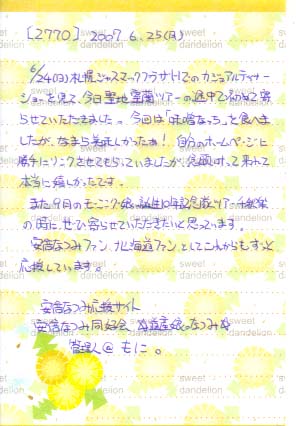 [2770] 2007.6.25(月)
6/24(日)札幌ジャスマックプラザホテルでのカジュアルディナー
ショーを見て、今日聖地室蘭ツアーの途中で寄
らせていただきました。今回は「味噌なっち」を食べま
したが、なまら美味しかったね！自分のホームページに
勝手にリンクさせてもらっていましたが、
本当に嬉しかったです。
また9月のモーニング娘。誕生10年記念隊ツアー千秋楽
の時に、ぜひ寄らせていただきたいと思っています。
安倍なつみファン、北海道ファンとしてこれからもずっと
応援しています。
安倍なつみ応援サイト
安倍なつみ同好会 道産娘。なつみ
管理人@もに。
sweet dandelion